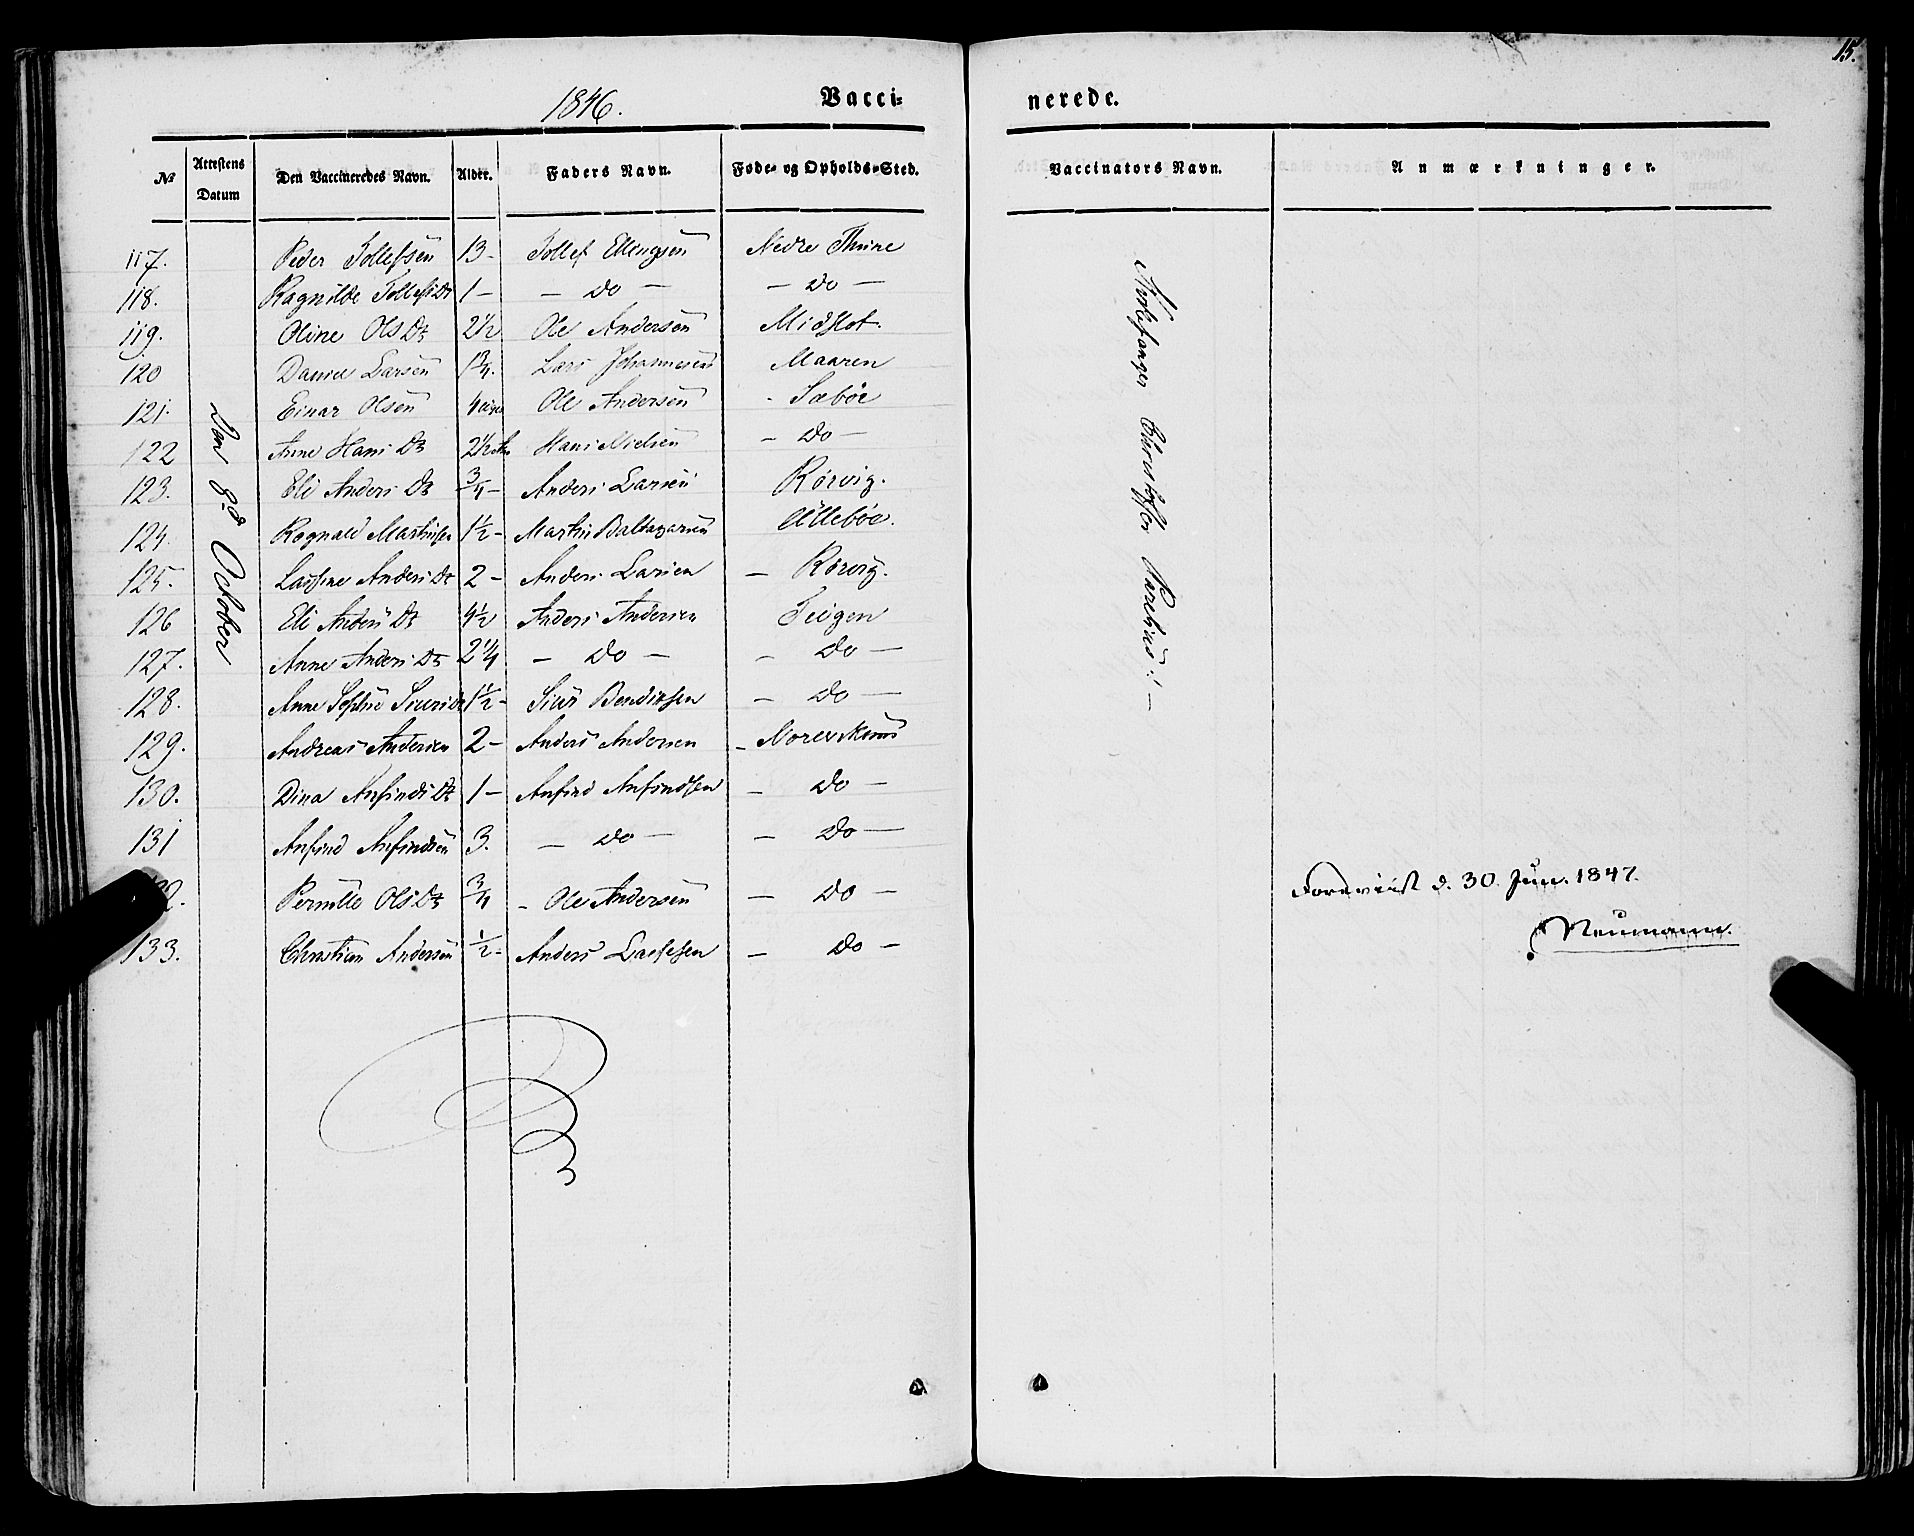 15.
1846. Vacci= nerede.
No Attestens Datum Den Vaccineredes Navn. Alder. Faders Navn. Føde- og Opholds-Sted. Vaccinators Navn. Anmærkninger.
117. Peder Tollefsen 13 - Tollef Ellingsen Nedre Thune
118. Ragnilde Tollefsdr 1 - — do — — do —
119. Oline Olsdr 2 1/2 Ole Andersen Midflot.
120 Daniel Larsen 1 3/4. Lars Johannesen Maaren
121. Einar Olsen 4 Ole Andersen - Sæbøe
122 Anne Hans Dr 2 1/2 Hans Nielsen — do —
123. Eli Anders Dr 3/4 - Anders Larsen Rørvig.
124. Rognald Martinsen 1 1/2 - Martin Baltazarsen Üllebøe.
125. Anders Dr 2 - Anders Larsen — Rørvig.
126 Eli Anders Dr 4 1/2 Anders Andersen Teigen
127. Anne Anders Dr 2 1/4 — do — — do —
128. Anne Sophie Siursdr 1 1/2 - Siur Bendixsen — do —
129. Andreas Andersen 2 - Anders Andersen -
130. Dina Anfinds Dr 1 - Anfind Anfindsen — do —
131 Anfind Anfindsen 3. — do — — do —
2. Pernille Ols Dr 3/4 - Ole Andersen — do —
133. Christian Andersen 1/2 - Anders Lassesen — do —
Den 8d October
Christoffer
Foreviist d. 30. Jun. 1847.
Neumann.